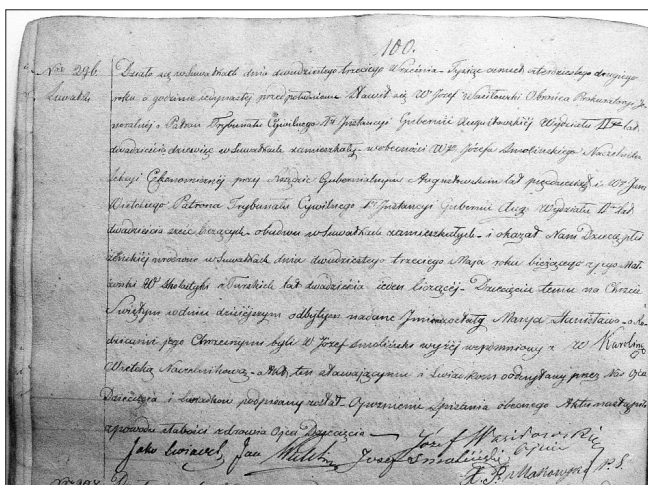 100.
Nro 296. Działo się w Suwałkach dnia dwudziestego trzeciego Września Tysiąc ośmset czterdziestego drugiego
Suwałki roku o godzinie jedynastej przed południem Stawił się W Józef Wasiłowski Obrońca Prokuratoryi Je-
neralnej i Patron Trybunału Cywilnego 1ej Instancyi Gubernii Augustowskiej Wydziału II lat
dwadzieścia dziewięć w Suwałkach zamieszkały w obecności W Józefa Smolińskiego Naczelnika
Sekcyi Ekonomicznej przy Rządzie Gubernialnym Augustowskim lat pięćdziesiąt i W Jana
Patrona Trybunału Cywilnego 1ej Instancyi Gubernii Aug: Wydziału II lat
dwadzieścia sześć liczących obudwu w Suwałkach zamieszkałych i okazał Nam Dziecię płci
żeńskiej urodzone w Suwałkach dnia dwudziestego trzeciego Maja roku bieżącego z jego Mał-
żonki W lat dwadzieścia jeden liczącej Dziecięciu temu na Chrzcie
Świętym w dniu dzisiejszym odbytym nadane Imiona zostały Marya Stanisława a Ro-
dzicami jego Chrzestnymi byli W Józef Smoliński wyżej wspomniony z W Karoliną
Naczelnikową Akt ten stawającemu i świadkom odczytany przez Nas Ojca
Dziecięcia i świadków podpisany został Opóźnienie spisania obecnego Aktu nastąpiło
z powodu słabości zdrowia Ojca Dziecięcia
Józef Wasiłowski
Jako świadek Jan Józef Smoliński Ojciec
X. P. Makowski P. S.